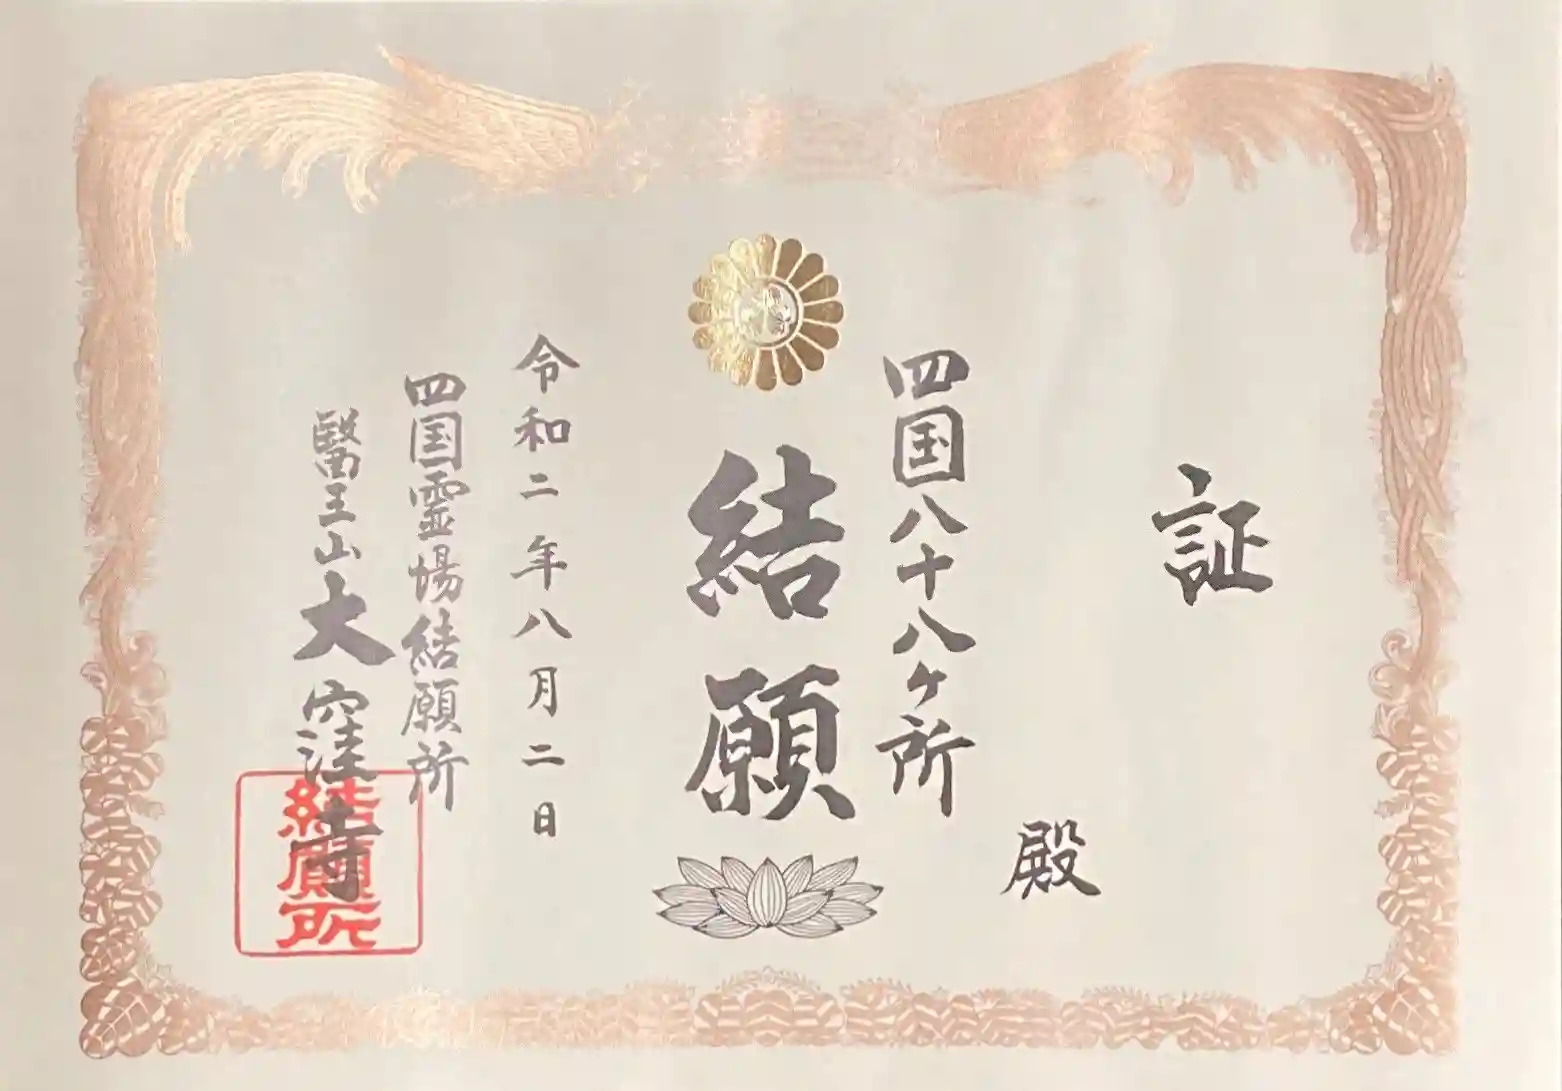 証
殿
四国八十八ヶ所
結願
令和二年八月二日
四国霊場結願所
醫王山大窪寺
結願所